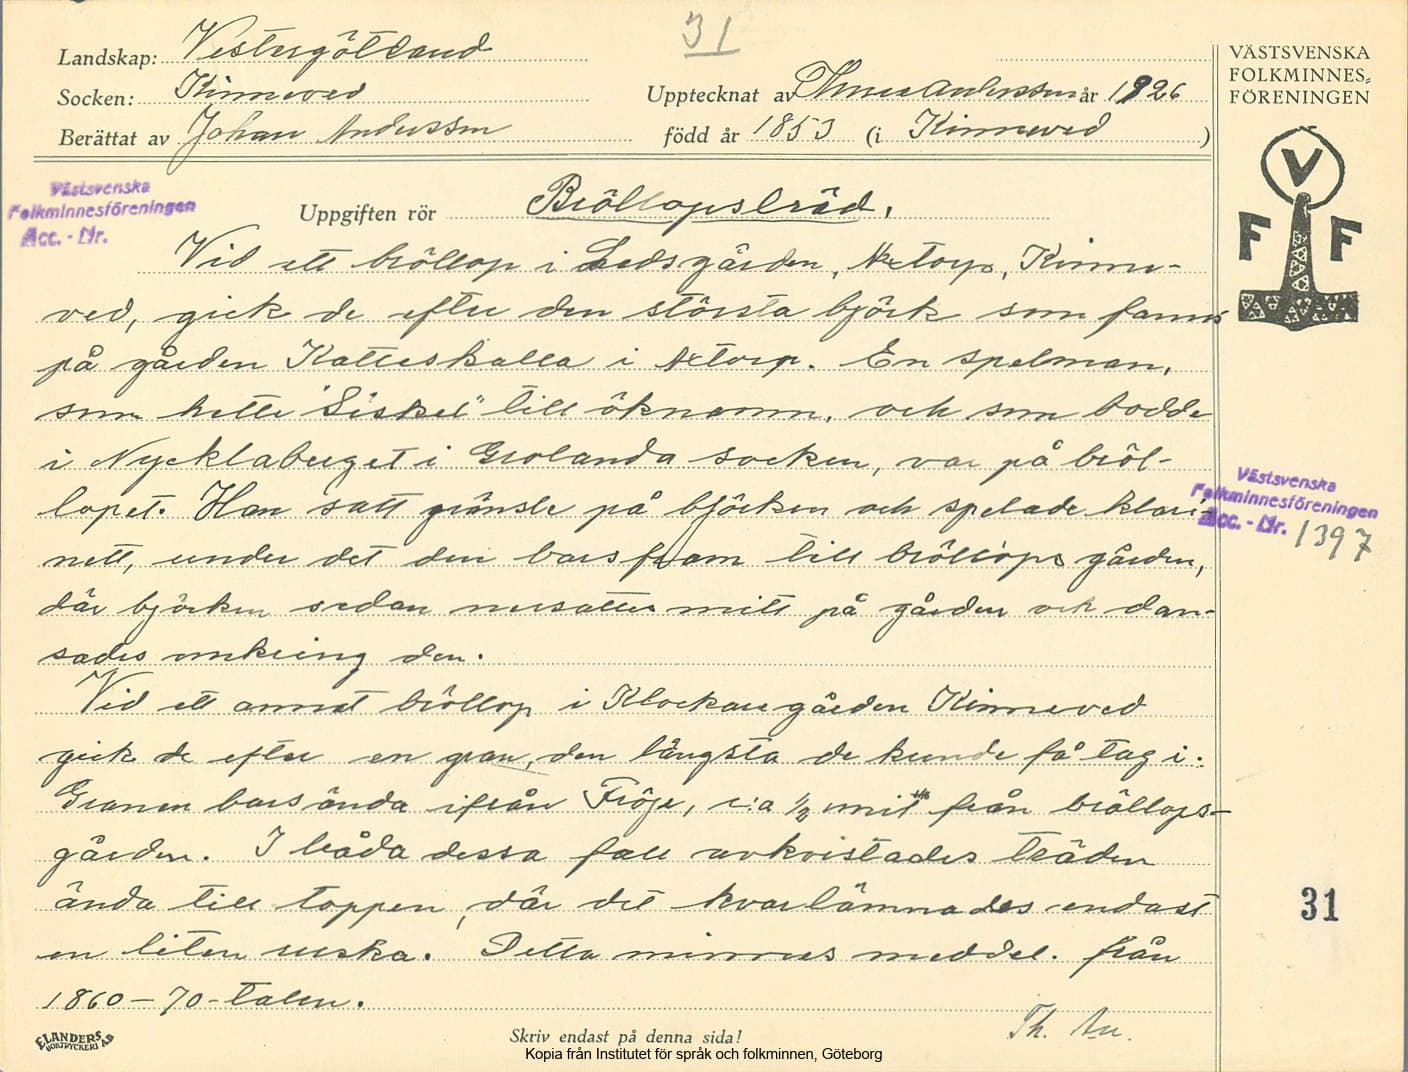 31
Landskap: Vestergötland
Socken: Kinneved
Upptecknat av Thure Andersson år 1926
Berättat av Johan Andersson född år 1853 (i Kinneved)
VÄSTSVENSKA
FOLKMINNES-
FÖRENINGEN
V
F F
Västsvenska
Folkminnesföreningen
Acc. - Nr.
Uppgiften rör Bröllopsträd.
Vid ett bröllop i Ledsgården, Axtorp, Kinne-
ved, gick de efter den största björk som fanns
på gården Katteskalla i Axtorp. En spelman,
som hette "Siskel" till öknamn, och som bodde
i Nycklaberget i Grolanda socken, var på bröl-
lopet. Han satt gränsle på björken och spelade klari-
nett, under det den bars fram till bröllops gården,
där björken sedan nersattes mitt på gården och dan-
sades omkring den.
Vid ett annat bröllop i Klockaregården Kinneved
gick de efter en gran, den längsta de kunde få tag i.
Granen bars ända ifrån Fröje, c:a 1/2 mil från bröllops-
gården. I båda dessa fall avkvistades träden
ända till toppen, där det kvarlämnades endast
en liten ruska. Detta minnes meddel. från
1860-70-talen.
Th. An.
Västsvenska
Folkminnesföreningen
Acc. - Nr. 1397
31
ELANDERS
BOKTRYCKERI AB
Skriv endast på denna sida!
Kopia från Institutet för språk och folkminnen, Göteborg